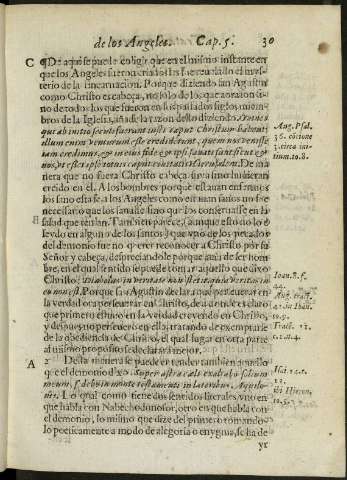 de los Angeles. Cap. 5. 30
C ¶De aqui se puede coligir que en el mismo instante en
que los Angeles fueron criados les fue reuelado el mys-
terio de la incarnacion. Porque diziendo san Agustin
como Christo es cabeça, no solo de los que aora son si-
no de todos los que fueron en los passados siglos miem-
bros de la Iglesia, añade la razon desto diziendo. Omnes
qui ab initio seculi fuerunt iusti caput Christum habent:
illum enim venturum esse crediderunt, quem nos venisse
iam credimus, & in eius fide & ipsi sanati sunt sicut & nos,
ut esset ipse totius caput ciuitatis Hierusalem. De ma
nera que no fuera Christo cabeça suya sino huuieran
creido en el. A los hombres porque estauan enfermos
los sano esta fe a los Angeles como estauan sanos no fue
necessario que los sanasse sino que los conseruasse en la
B salud que tenian. Tambien parece, aunque esto no lo e
leydo en alguno de los santos, que vno de los pecados
del demonio fue no querer reconocer a Christo por su
Señor y cabeça, despreciandole porque auia de ser hom
bre, en el qual sentido se puede tomar aquello que dixo
Christo: Diabolus in veritate non stetit, quia veritas in
eo non est. Porque san Agustin declara aquel estuuer en la
verdad
que primero estuuo en la verdad creyendo en Christo,
y despues no perseuero en ella, tratando de exemptarse
de la obediencia de Christo, el qual lugar en otra parte
al mismo proposito se declara mejor.
A 2 Desta manera se puede entender tambien aquello
que el demonio dixo. Super astra cæli exaltabo solium
meum, sedebo in monte testamenti in lateribus Aquilo-
nis. Lo qual como tiene dos sentidos literales vno en
que habla con Nabuchodonosor, otro en que habla con
el demonio, lo mismo que dize del primero tomando-
lo poeticamente a modo de alegoria o enygma, se ha de
yr
Aug. Psal.
36. concione
3. circa ini-
tium. 10. 8.
Ioan. 8. f.
44.
Aug. tract.
42. in Ioan.
to. 9.
Tract. 12.
Isai. 14. c.
13.
ibi Hieron.
to. 5.